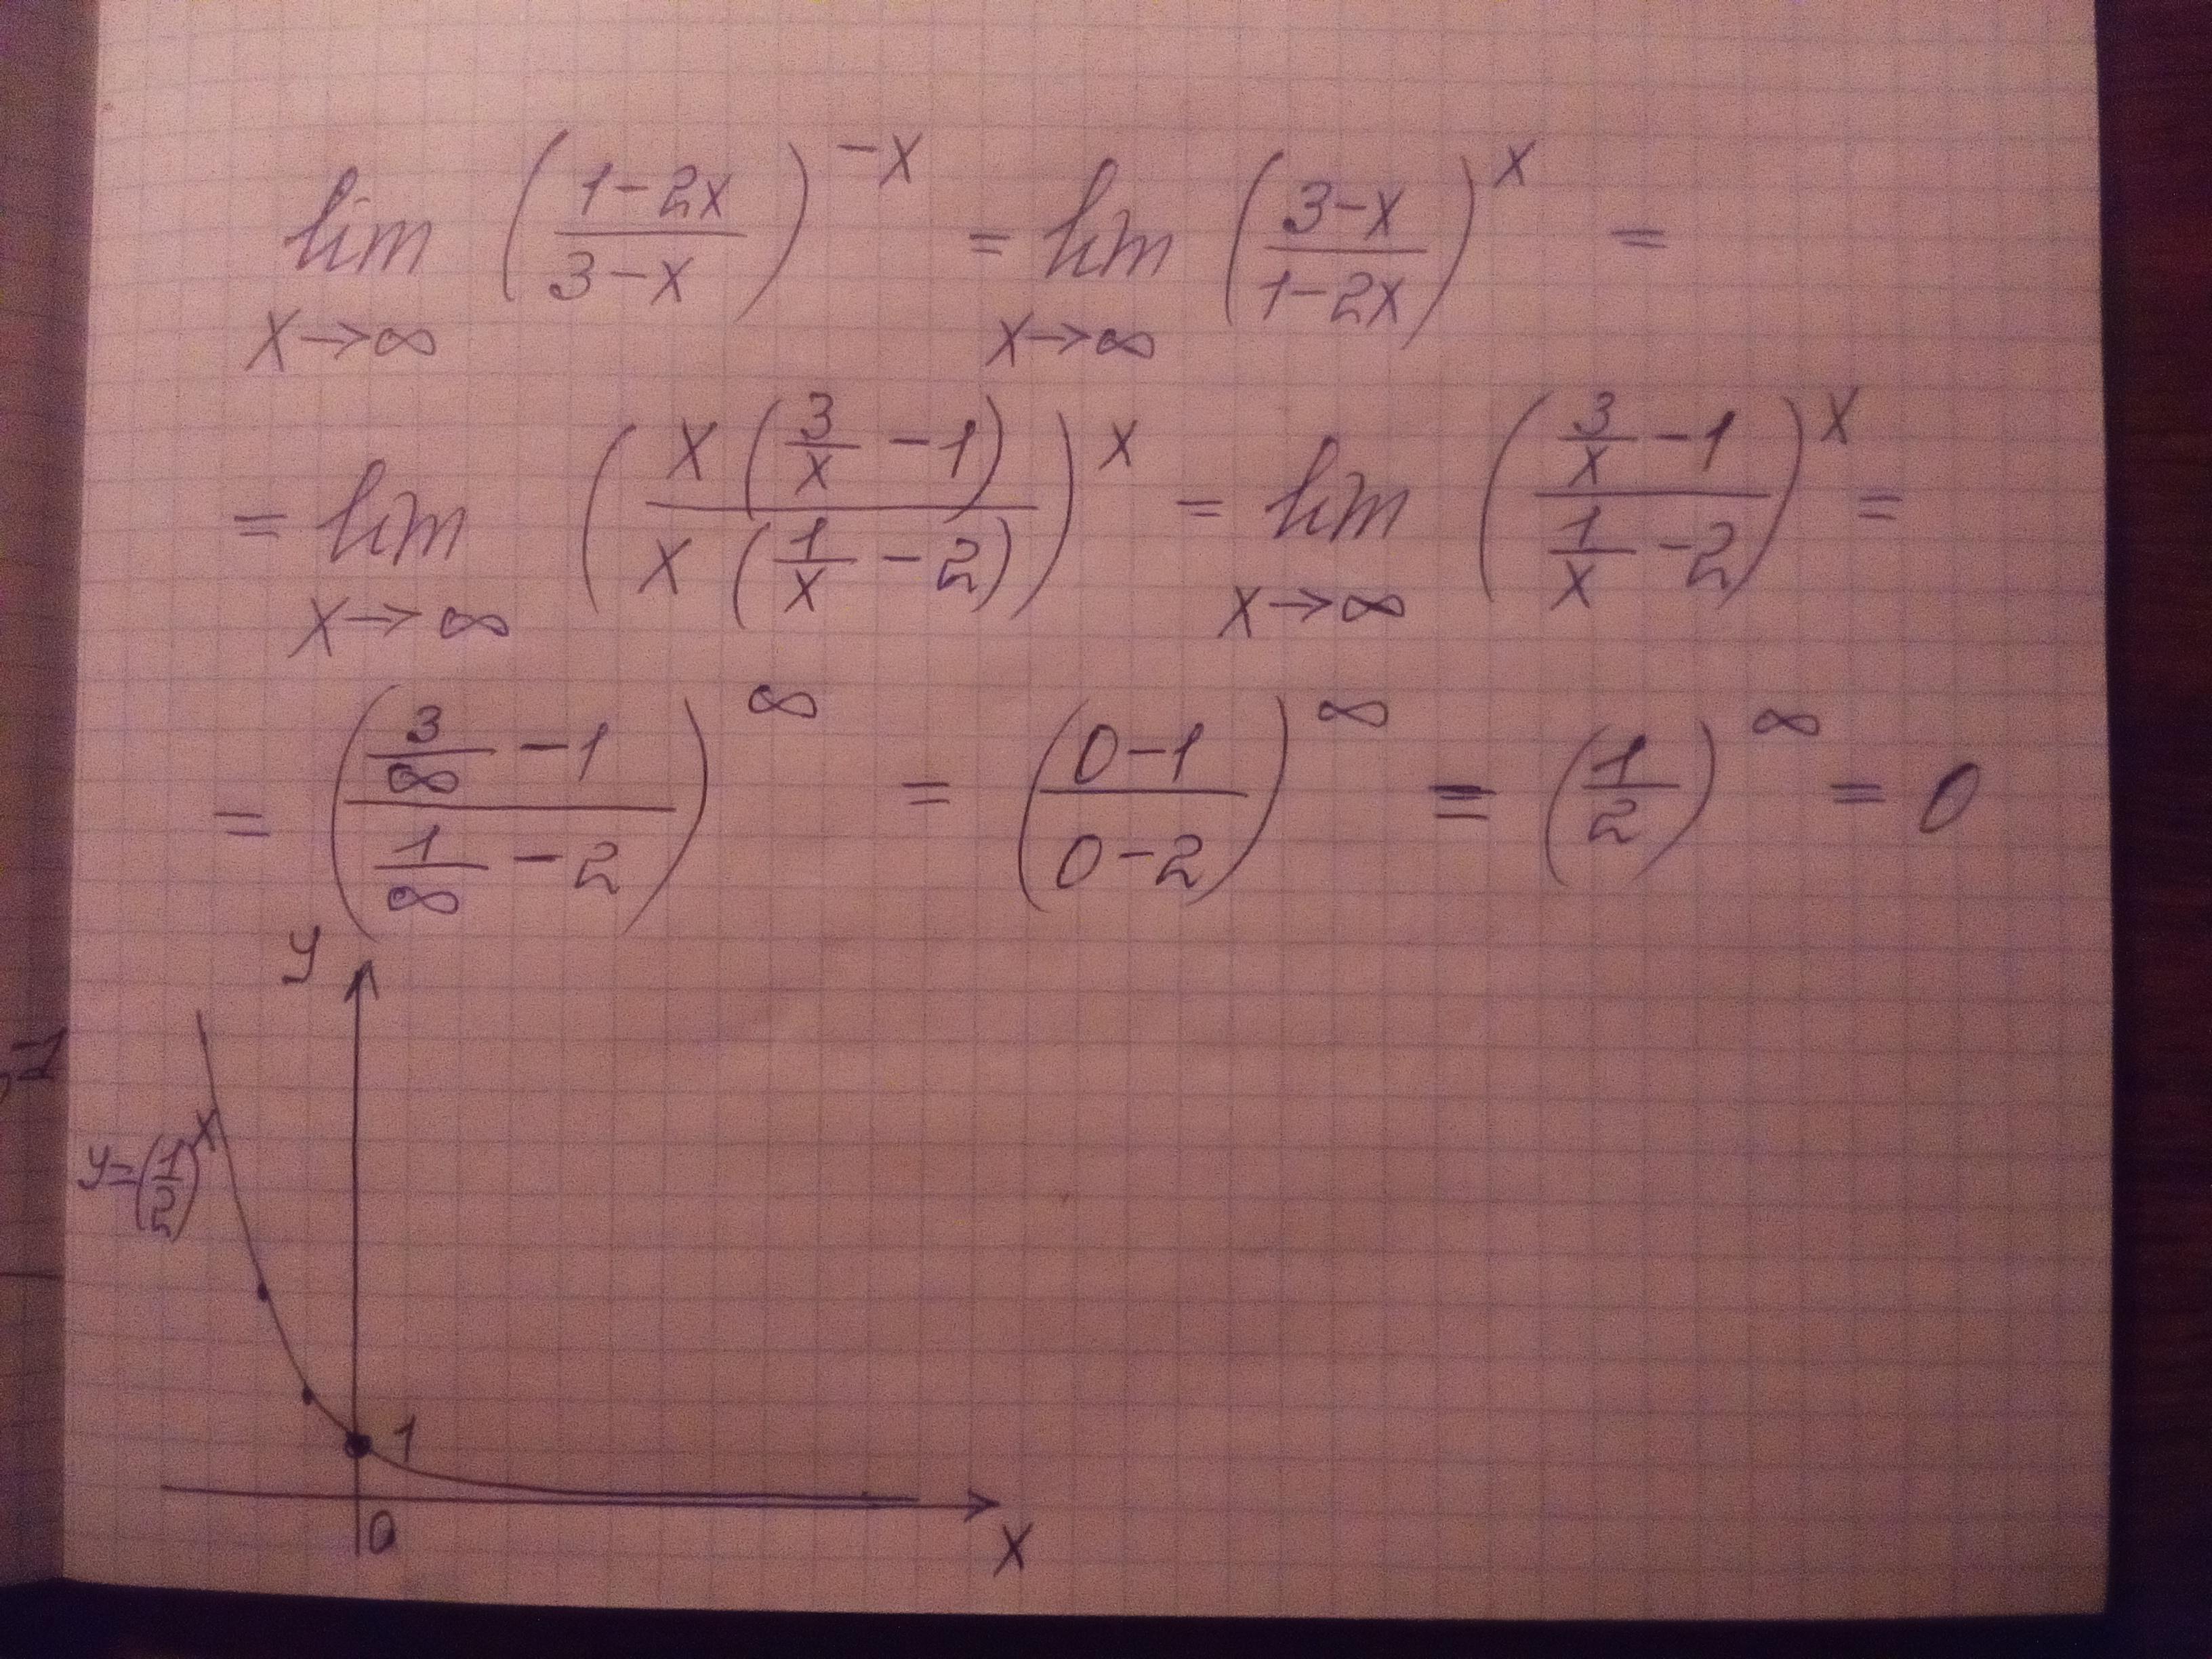 lim x→∞ ((1-2x)/(3-x))^(-x) = lim x→∞ ((3-x)/(1-2x))^x =
= lim x→∞ ((x(3/x -1))/(x(1/x -2)))^x = lim x→∞ ((3/x -1)/(1/x -2))^x =
= ((3/∞ -1)/(1/∞ -2))^∞ = ((0-1)/(0-2))^∞ = (1/2)^∞ = 0
y
-1
y=(1/2)^x
1
0
x